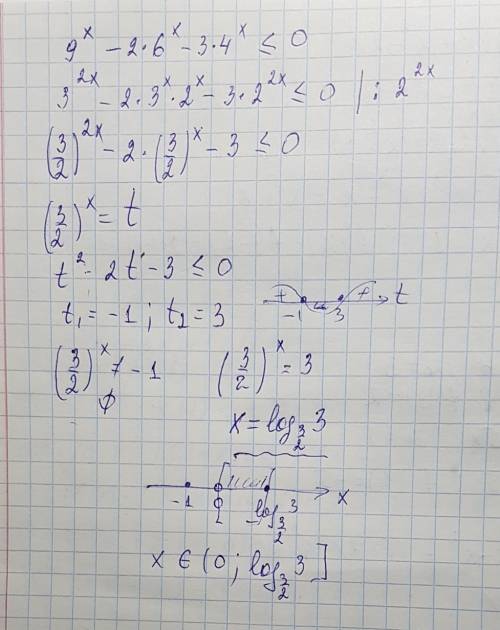 9^x - 2·6^x - 3·4^x ≤ 0
3^{2x} - 2·3^x·2^x - 3·2^{2x} ≤ 0 | : 2^{2x}
(3/2)^{2x} - 2·(3/2)^x - 3 ≤ 0
(3/2)^x = t
t^2 - 2t - 3 ≤ 0
t_1 = -1 ; t_2 = 3
+ - + -1 3 t
(3/2)^x ≠ -1 (3/2)^x = 3
∅
x = log_{3/2} 3
-1 0 log_{3/2} 3 x
x ∈ (0 ; log_{3/2} 3]